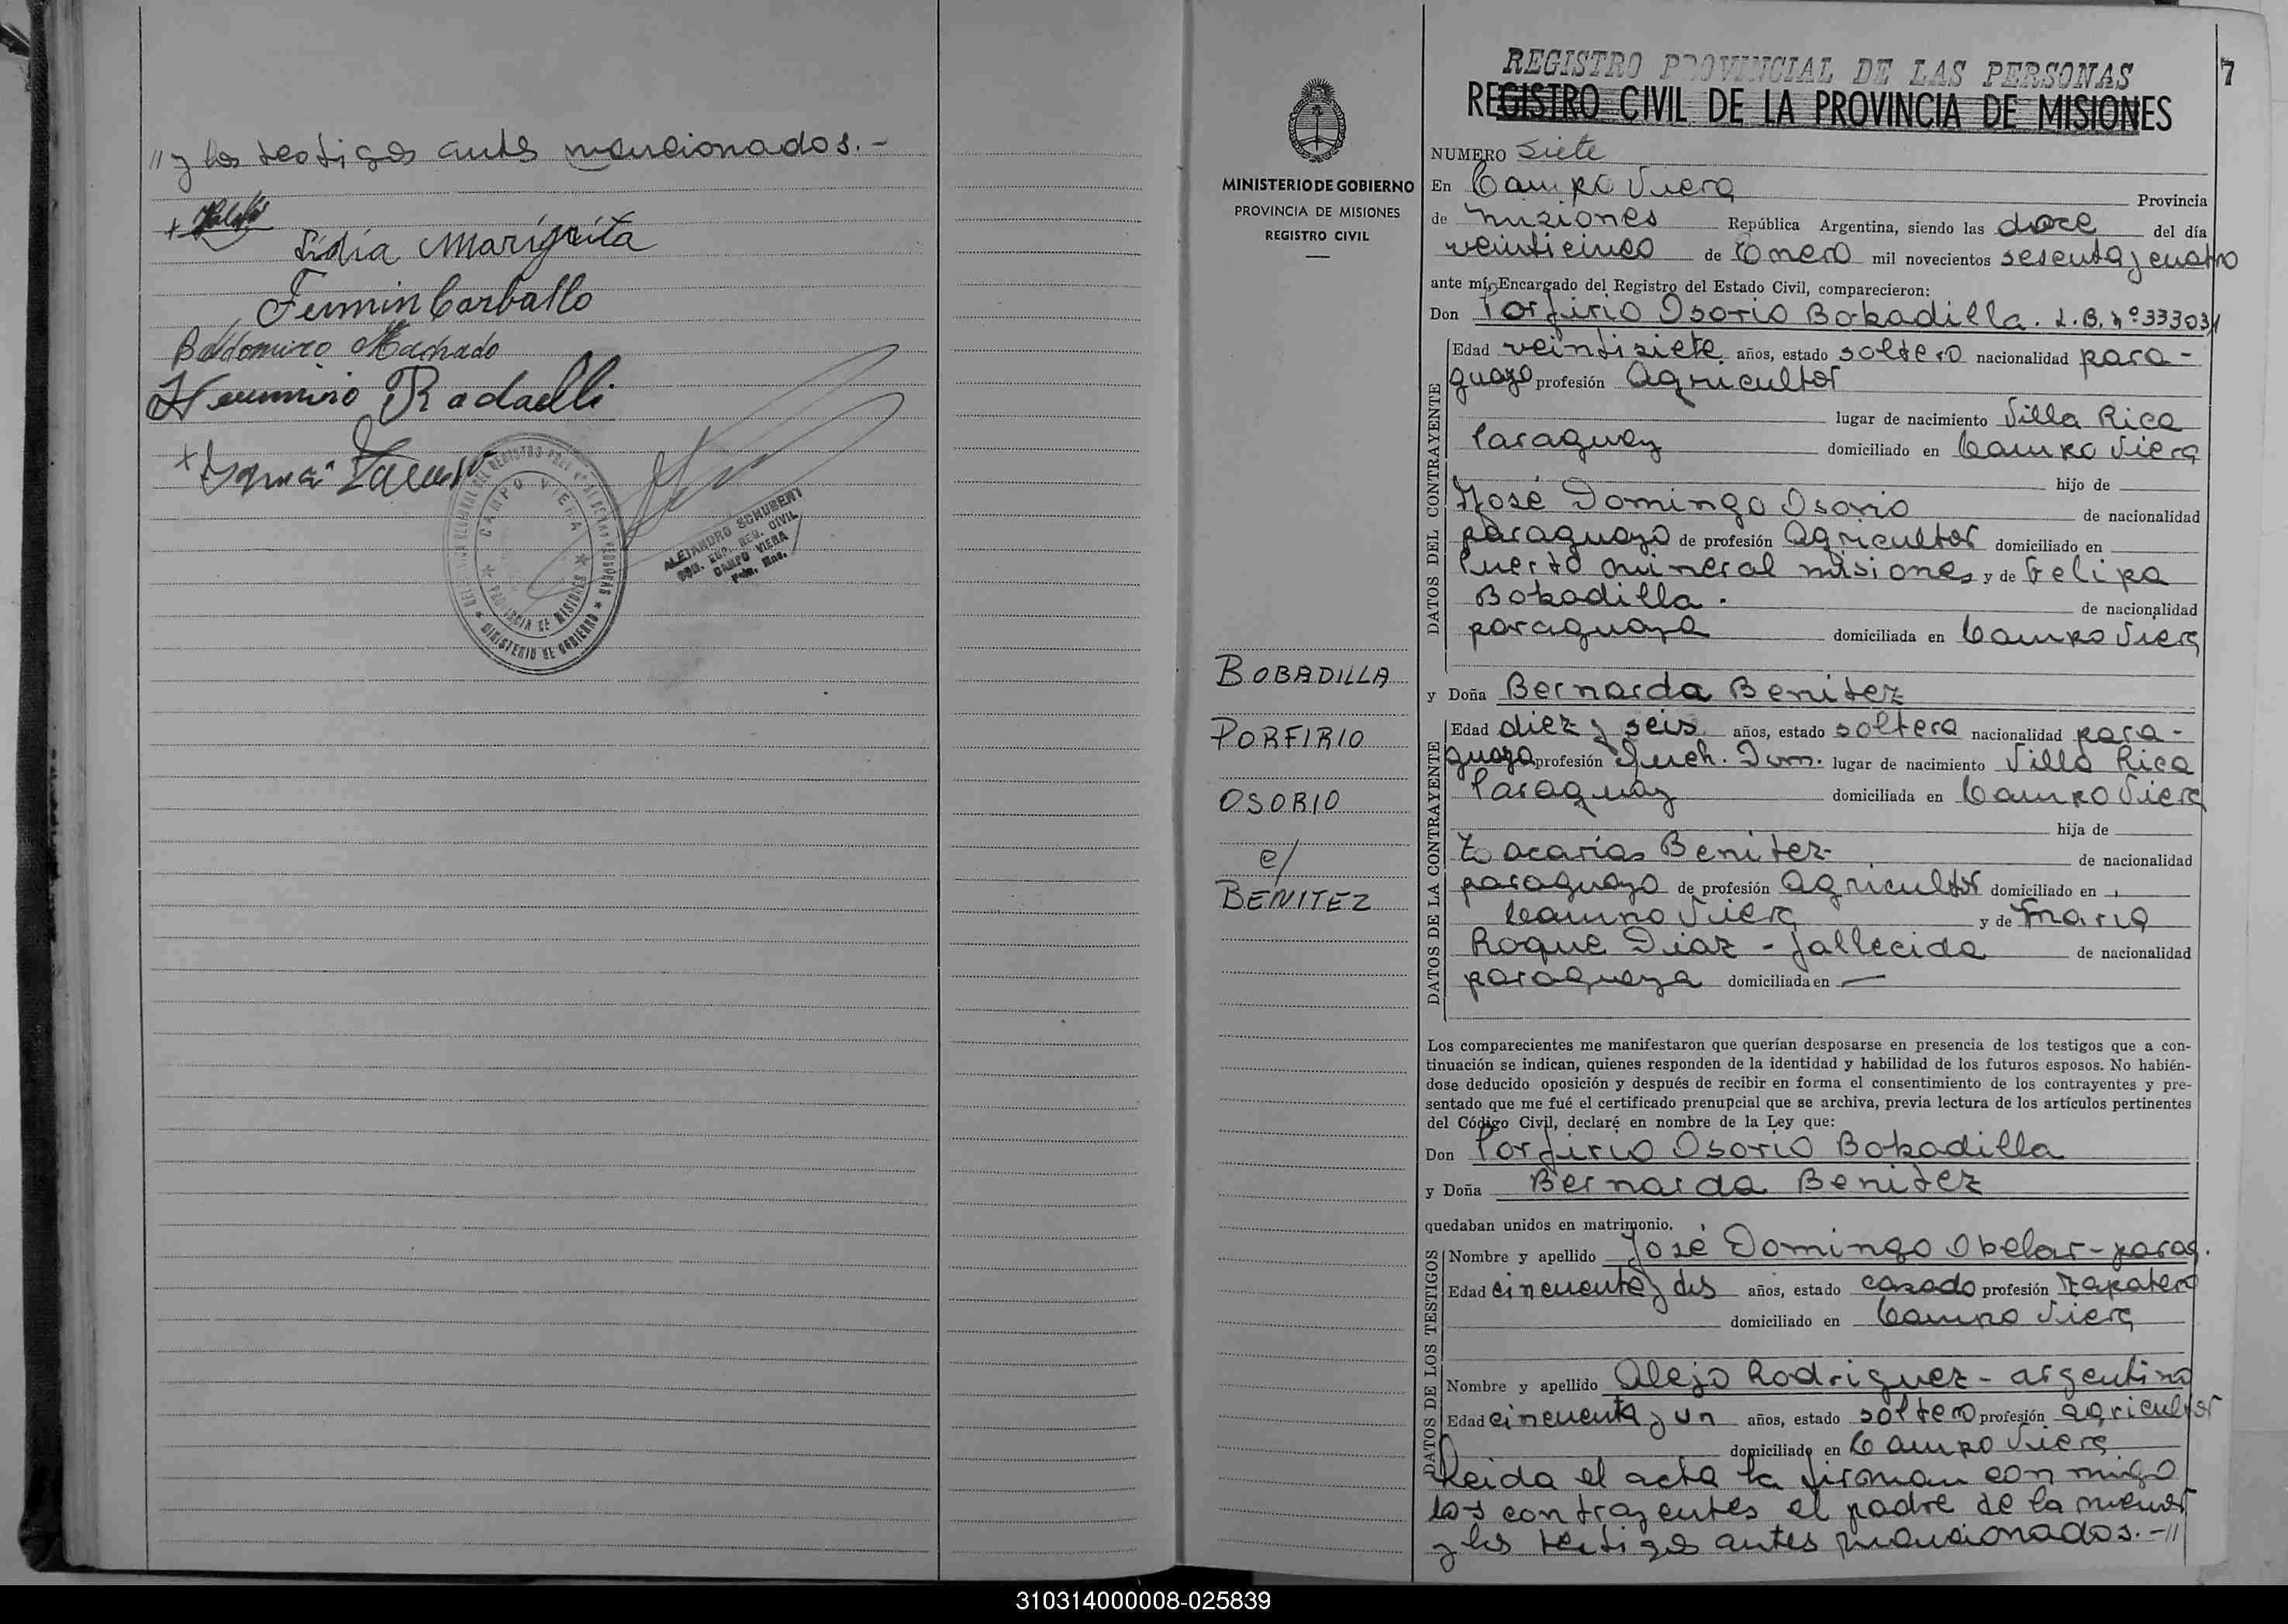 " y los testigos antes mencionados.-
Lidia Margarita
Fermin Carballo
Baldomiro Machado
Herminio Radaelli
CAMPO VIERA
PROVINCIA DE MISIONES
MINISTERIO DE GOBIERNO
ALEJANDRO SCHUBERT
ENC. REG. CIVIL
CAMPO VIERA
MINISTERIO DE GOBIERNO
PROVINCIA DE MISIONES
REGISTRO CIVIL
BOBADILLA
PORFIRIO
OSORIO
c/
BENITEZ
REGISTRO PROVINCIAL DE LAS PERSONAS
7
REGISTRO CIVIL DE LA PROVINCIA DE MISIONES
NUMERO Siete
En Campo Viera Provincia
de Misiones República Argentina, siendo las doce del día
veinticinco de Enero mil novecientos sesenta y cuatro
ante mí, Encargado del Registro del Estado Civil, comparecieron:
Don Porfirio Osorio Bobadilla. L.B. nº 333031
DATOS DEL CONTRAYENTE
Edad veintisiete años, estado soltero nacionalidad para-
guayo profesión Agricultor
lugar de nacimiento Villa Rica
Paraguay domiciliado en Campo Viera
hijo de
José Domingo Osorio de nacionalidad
paraguayo de profesión Agricultor domiciliado en
Puerto Mineral Misiones y de Felipa
Bobadilla. de nacionalidad
paraguaya domiciliada en Campo Viera
y Doña Bernarda Benitez
DATOS DE LA CONTRAYENTE
Edad diez y seis años, estado soltera nacionalidad para-
guaya profesión Queh. Dom. lugar de nacimiento Villa Rica
Paraguay domiciliada en Campo Viera
hija de
Zacarías Benitez de nacionalidad
paraguayo de profesión Agricultor domiciliado en
Campo Viera y de María
Roque Diaz - fallecida de nacionalidad
paraguaya domiciliada en —
Los comparecientes me manifestaron que querían desposarse en presencia de los testigos que a con-
tinuación se indican, quienes responden de la identidad y habilidad de los futuros esposos. No habién-
dose deducido oposición y después de recibir en forma el consentimiento de los contrayentes y pre-
sentado que me fué el certificado prenupcial que se archiva, previa lectura de los artículos pertinentes
del Código Civil, declaré en nombre de la Ley que:
Don Porfirio Osorio Bobadilla
y Doña Bernarda Benitez
quedaban unidos en matrimonio.
DATOS DE LOS TESTIGOS
Nombre y apellido José Domingo Obelar - parag.
Edad cincuenta y dos años, estado casado profesión Zapatero
domiciliado en Campo Viera
Nombre y apellido Alejo Rodriguez - argentino
Edad cincuenta y un años, estado soltero profesión agricultor
domiciliado en Campo Viera
Leida el acta la firman con migo
los contrayentes el padre de la menor
y los testigos antes mencionados.-"
310314000008-025839